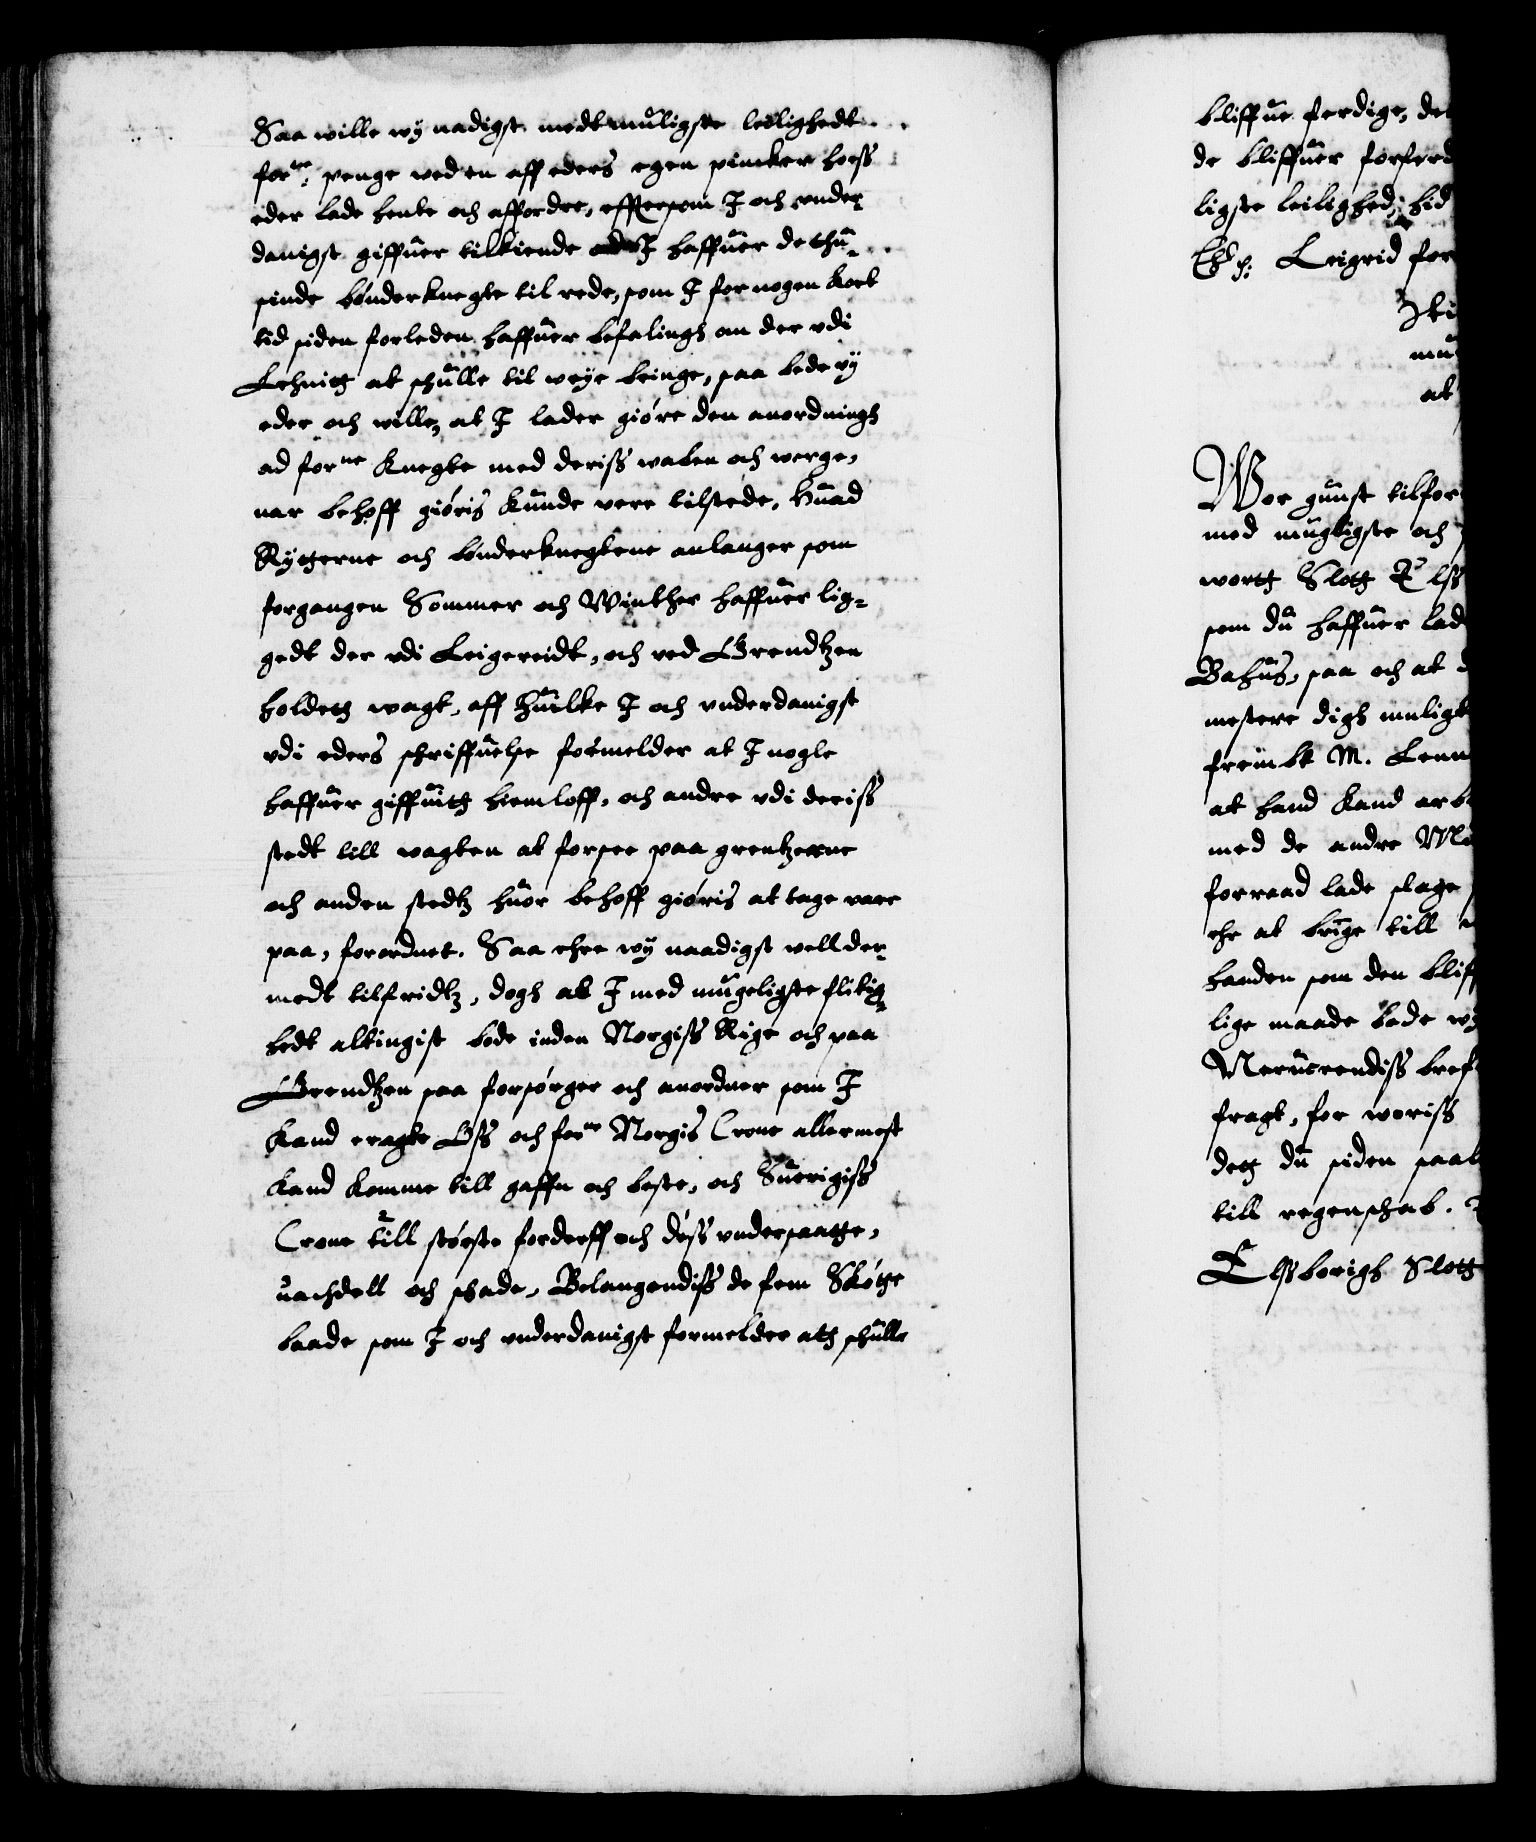 Saa wille wy nadigst medt muligste leilighedt
forne: penge ved en aff eders egen pincker hoess
eder lade hente och affordre, effttersom I och vnder¬
danigst giffuer tilkiende ad I haffuer de thu¬
sinde bønderknegte til rede, som I for nogen kort
tid siden forleden haffuer befalingh an der vdi
Lehnitt at schulle til veye bringe, saa bede vy
eder och wille, at I lader giøre den anordningh
ad forne Knegte med deriss waben och werge,
nar behoff giøris kunde vere tilstede, Huad
Rytterne och bønderknegtene anlanger som
forgangen Sommer och Winther haffuer lig¬
gedt der vdi Leigereidt, och ved Grendtzen
holdett wagt, aff huilke I och vnderdanigst
vdi eders schriffuelse formelder at I nogle
haffuer giffuitt hiemloff, och andre vdi deriss
stedt till wagten at forsee paa grentzerne
och anden stedtz huor behoff giøris at tage vare
paa, forordnet. Saa ehre wy naadigst vell der¬
medt tilfridtz, dogh at I med mugeligste flitig¬
hedt altingist bode inden Norgiss Rige och paa
Grendtzen saa forsørger och anordner som I
kand eragte Oss och forne Norgis Crone allermest
kand komme till gaffn och beste, och Suerigiss
Crone till største forderff och dess vndersaatte,
uachdell och schade, Belangendiss de fem Skøtte
baade som I och vnderdanigst formelder att schulle
bliffue ferdige, de
de bliffuer forferd
ligste leilighed, hid
Leigrid for
mu
at
Wor gunst tilfor
med mugligste och
wortt Slott Elss
som du haffuer lad
Bahus, saa och at d
mestere digh muligt
frembt M. Lenn
at hand kand arb
med de andre
forraad lade slage
ehr at bruge till
handen som den bliff
lige maade bede wy
Neruerendiss breff
fragt, for woriss
dett du siden saal
till regenschab.
Elssborigh Slott